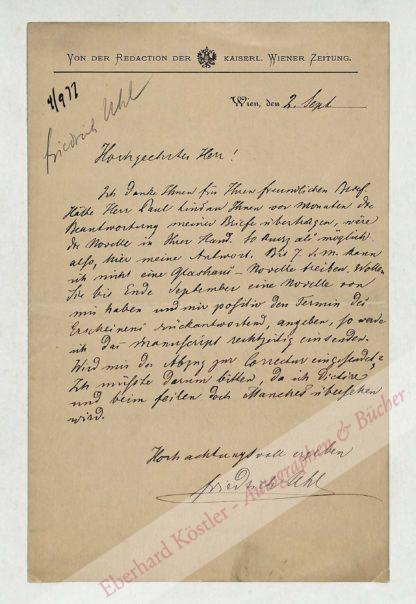 Von der Redaction der kaiserl. Wiener Zeitung.
4/9 77
Friedrich Uhl
Wien, den 2. Sept
Hochgeehrter Herr!
Ich danke Ihnen für Ihren freundlichen Brief.
Hätte Herr Paul Lindau Ihnen vor Monaten die
Beantwortung meiner Briefe übertragen, wäre
die Novelle in Ihrer Hand. So kurz als möglich
also, hier meine Antwort. Bis 7. d. M. kann
ich nicht eine Glashaus-Novelle treiben. Wollen
Sie bis Ende September eine Novelle von
mir haben und mir positiv den Termin des
Erscheinens rückantwortend, angeben, so werde
ich das Manuscript rechtzeitig einsenden.
Wird mir der Abzug zur Correctur eingesendet?
Ich müßte darum bitten, da ich dictire,
und beim feilen doch Manches übersehen
wird.
Hochachtungsvoll ergeben
Friedrich Uhl
Eberhard Köstler - Autographen & Bücher